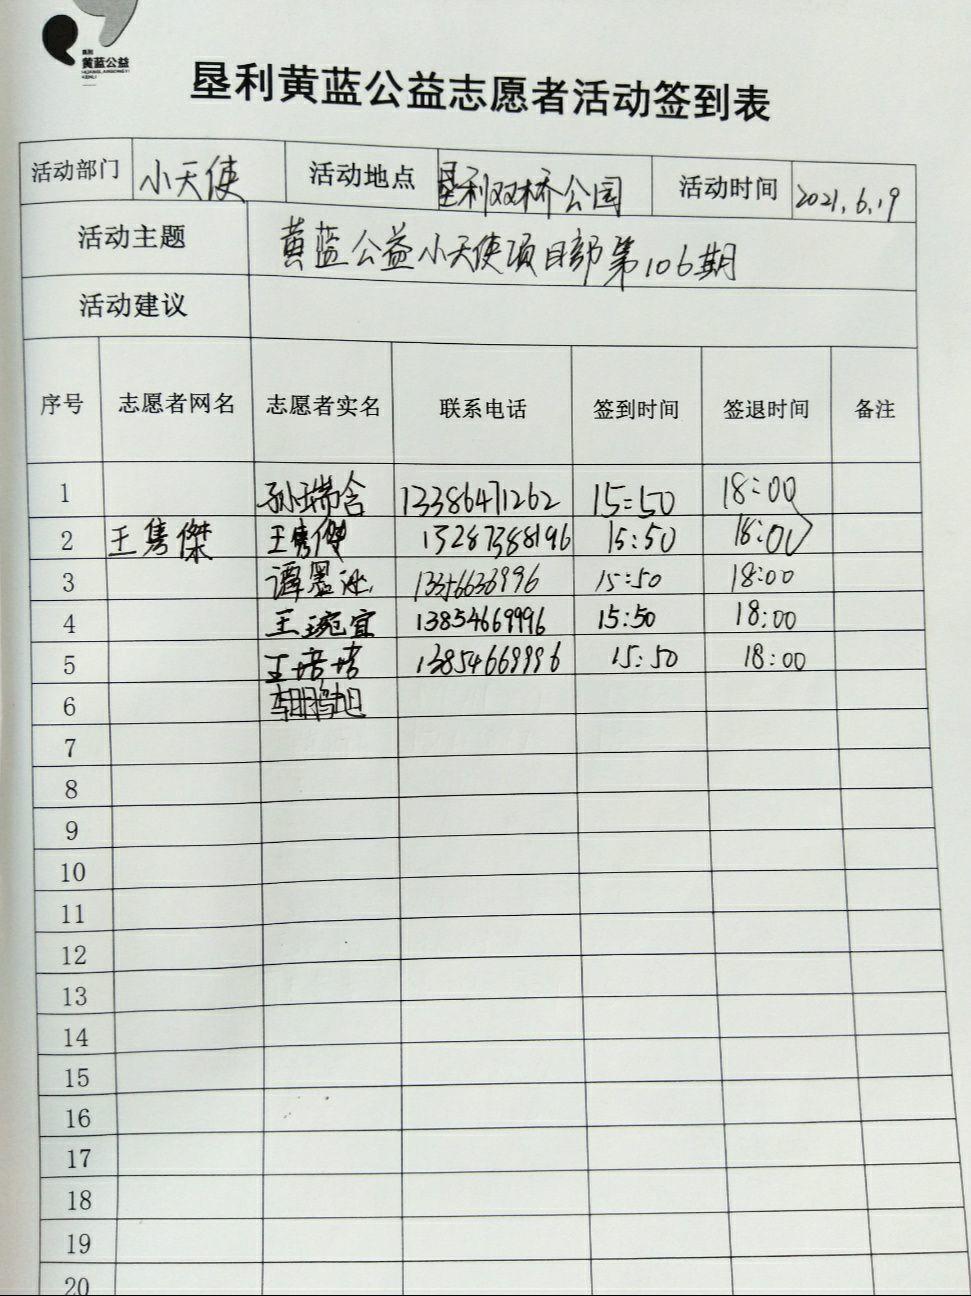 垦利
黄蓝公益
HUANGLANGONGYI
KENLI
垦利黄蓝公益志愿者活动签到表
活动部门 小天使 活动地点 垦利双桥公园 活动时间 2021.6.19
活动主题 黄蓝公益小天使项目部第106期
活动建议
序号 志愿者网名 志愿者实名 联系电话 签到时间 签退时间 备注
1 孙瑞含 13386471262 15:50 18:00
2 王隽傑 王隽傑 15287388196 15:50 18:00
3 谭墨 15:50 18:00
4 王琬宜 13854669996 15:50 18:00
5 王培培 13854669996 15:50 18:00
6 李鹏旭
7
8
9
10
11
12
13
14
15
16
17
18
19
20